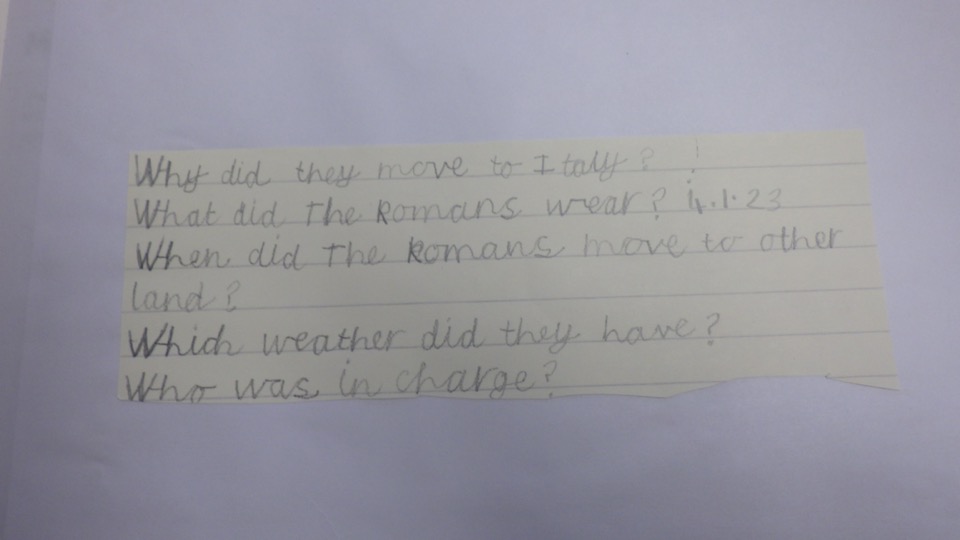 Why did they move to Italy?
What did The Romans wear? 4.1.23
When did The Romans move to other
land?
Which weather did they have?
Who was in charge?